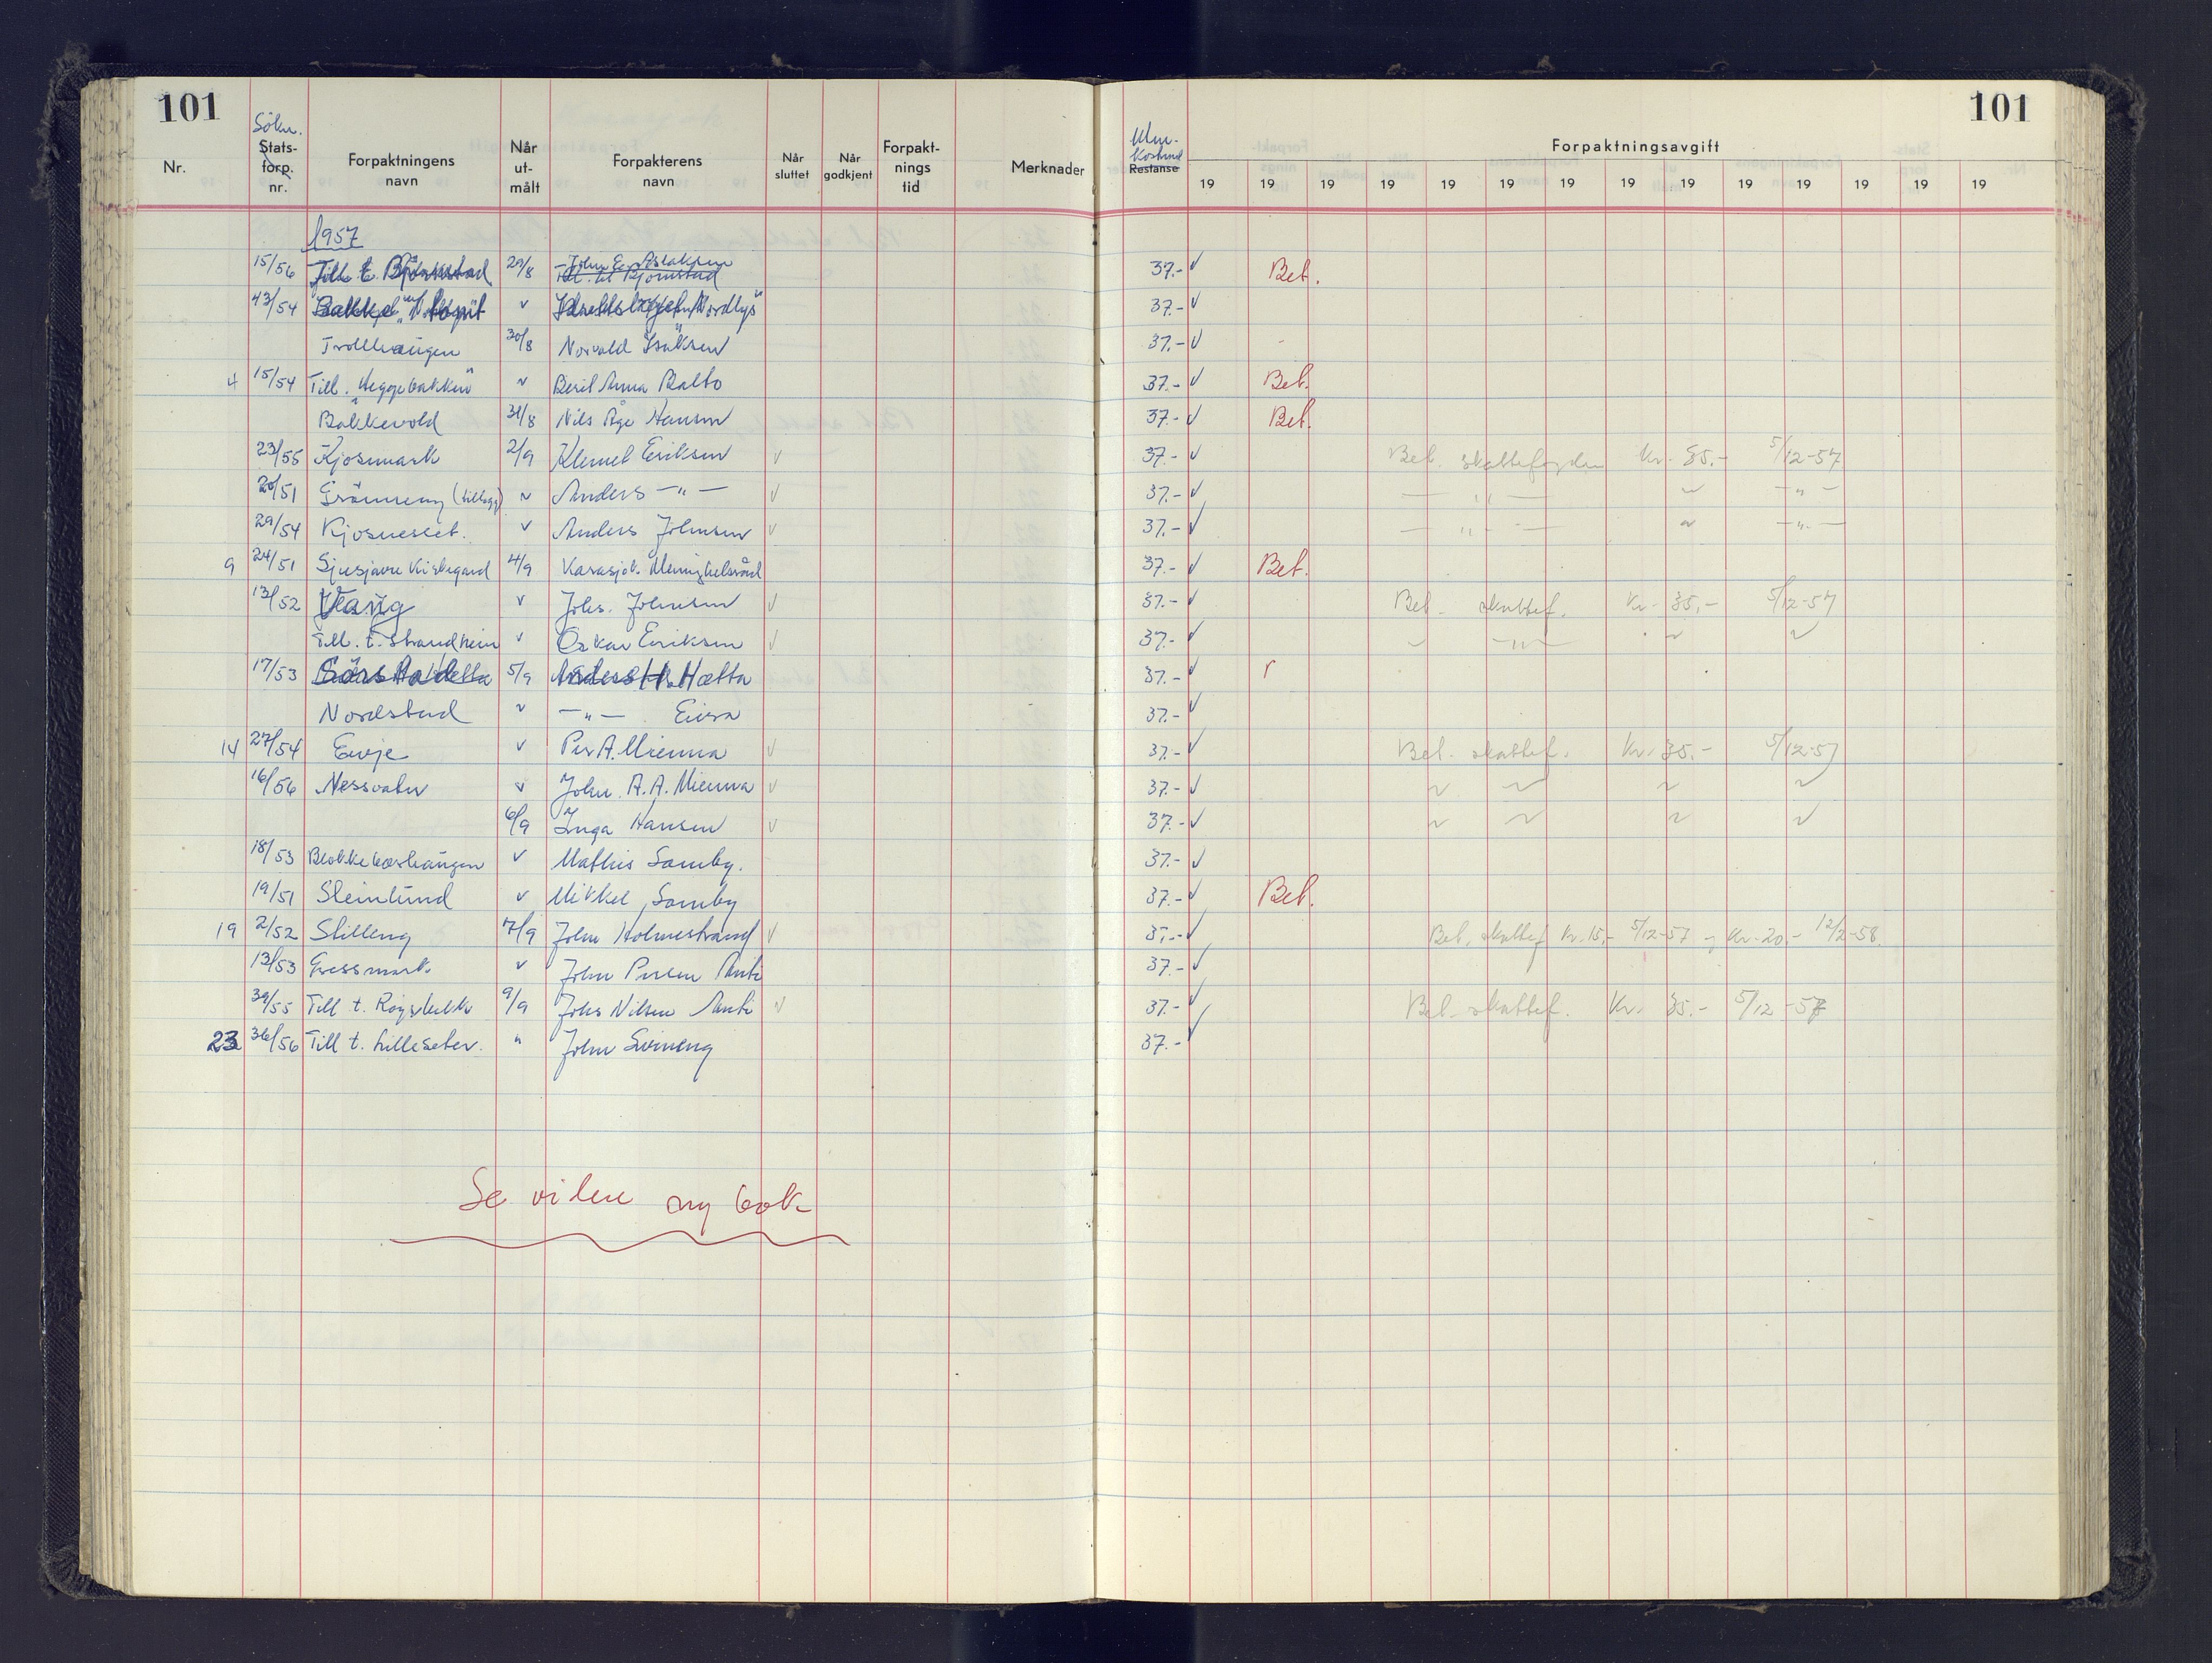 101
101
Nr. Søkn. Stats-forp. nr. Forpaktningens navn Når ut-målt Forpakterens navn Når sluttet Når godkjent Forpakt-nings tid Merknader Restanse Forpaktningsavgift
19 19 19 19 19 19 19 19 19 19 19 19 19 19
1957
15/56 Till t. Bjørnstad 29/8 John E. Aslaksen 37.- ✓ Bet.
43/54 v Idrettslaget "Nordlys" 37.- ✓
Trollhaugen 30/8 Norvald Isaksen 37.- ✓
4 15/54 Till. "Heggebakken" v Berit Anna Balto 37.- ✓ Bet.
Bakkevold 31/8 Nils Åge Hansen 37.- ✓ Bet.
23/55 Kjosmark 2/9 Klemet Eriksen v 37.- ✓ Bet. skattefogden Kr. 35.- 5/12-57
20/51 Grönneng (tillegg) v Anders -"- v 37.- ✓ -"- ~ -"-
29/54 Kjosneset. v Anders Johnsen v 37.- ✓ -"- ~ -"-
9 24/51 Sjusjavre Kirkegard 4/9 Karasjok Menighetsråd 37.- ✓ Bet.
13/52 Vang v Johs. Johnsen v 37.- ✓ Bet. skattef. Kr. 35.- 5/12-57
Till. t. Strandheim v Oskar Eriksen v 37.- ✓ ~ -"- ~ ~
17/53 5/9 Anders H. Hætta 37.- ✓ r
Nordstad v -"- Eira 37.- ✓
14 27/54 Evje v Per A. Mienna v 37.- ✓ Bet. skattef. Kr. 35.- 5/12-57
16/56 Nessvatn v John A.A. Mienna v 37.- ✓ ~ ~ ~ ~
6/9 Inga Hansen v 37.- ✓ ~ ~ ~ ~
18/53 Blokkebærhaugen v Mathis Somby. 37.- ✓
19/51 Steinlund v Mikkel Somby 37.- ✓ Bet.
19 2/52 Stilleng 7/9 John Holmestrand v 37.- ✓ Bet. skattef. Kr. 15.- 5/12-57 og Kr. 20.- 12/2-58.
13/53 Gressmark v John Persen Anti 37.- ✓
39/55 Till t. Røyskalk 9/9 Johs Nilsen Anti v 37.- ✓ Bet. skattef. Kr. 35.- 5/12-57
23 36/56 Till t. Lilleseter. " John Svineng 37.- ✓
Se videre ny bok